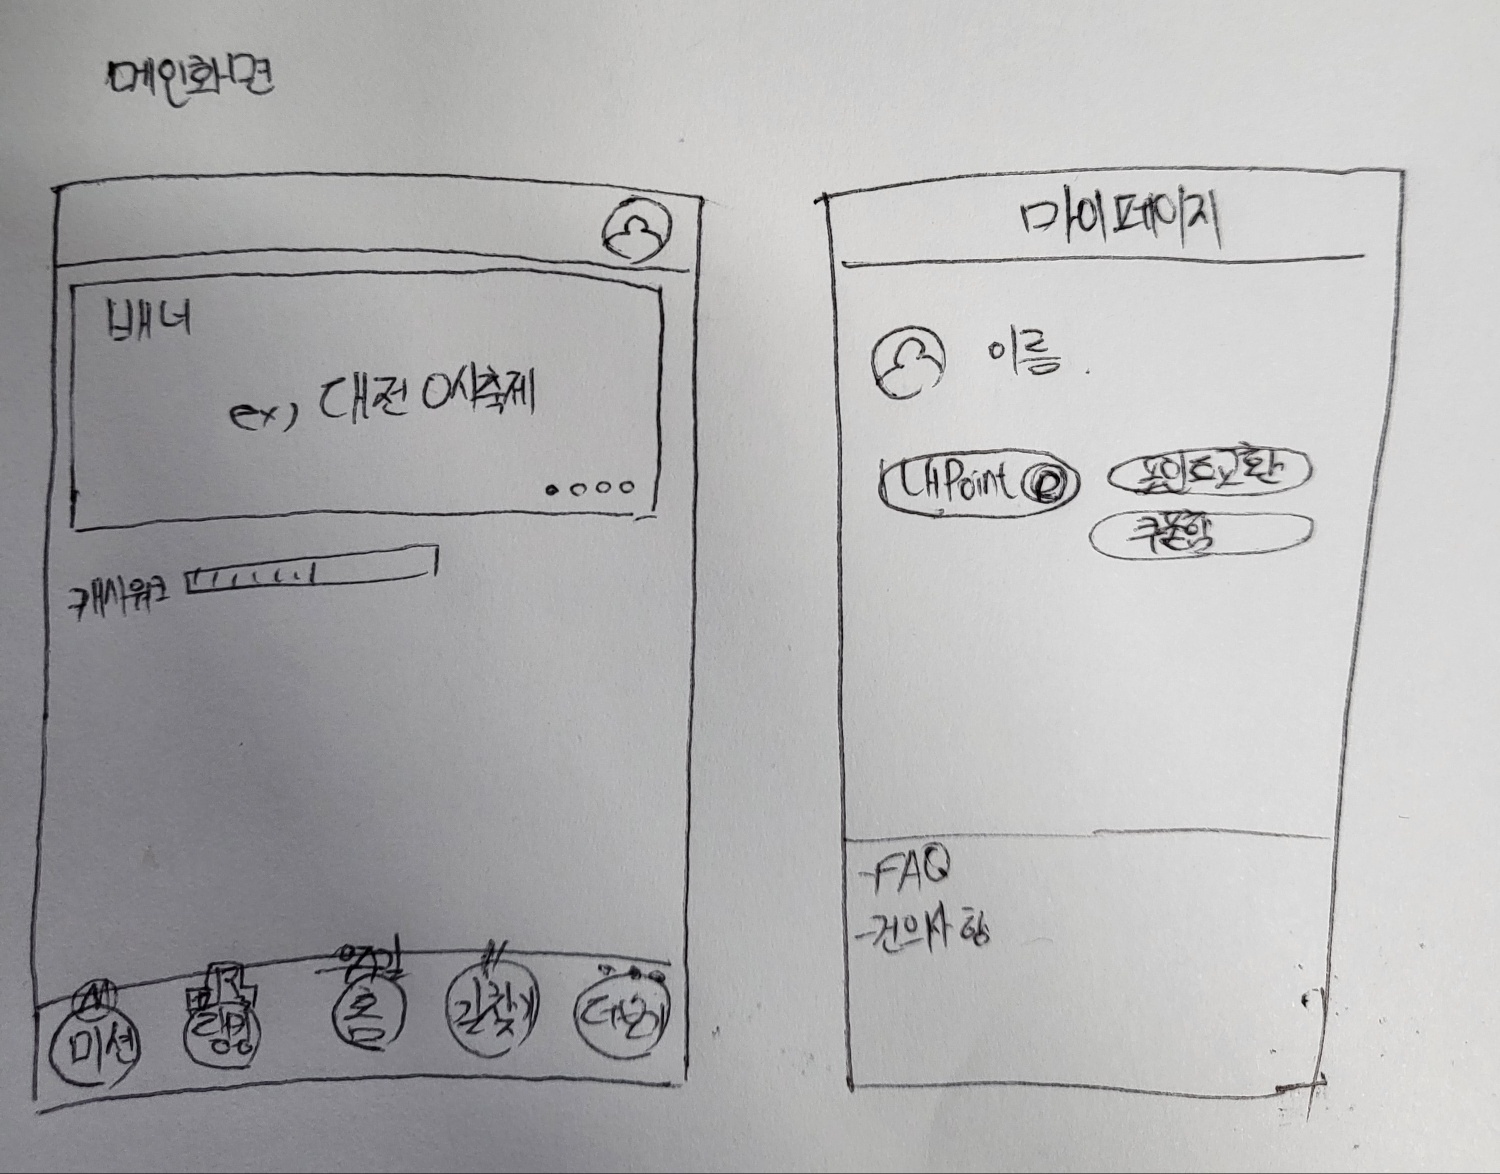 메인화면
배너
ex) 대전 0시축제
캐시워크
미션
랭킹
홈
길찾기
더보기
마이페이지
이름
내Point P
포인트교환
쿠폰함
-FAQ
-건의사항